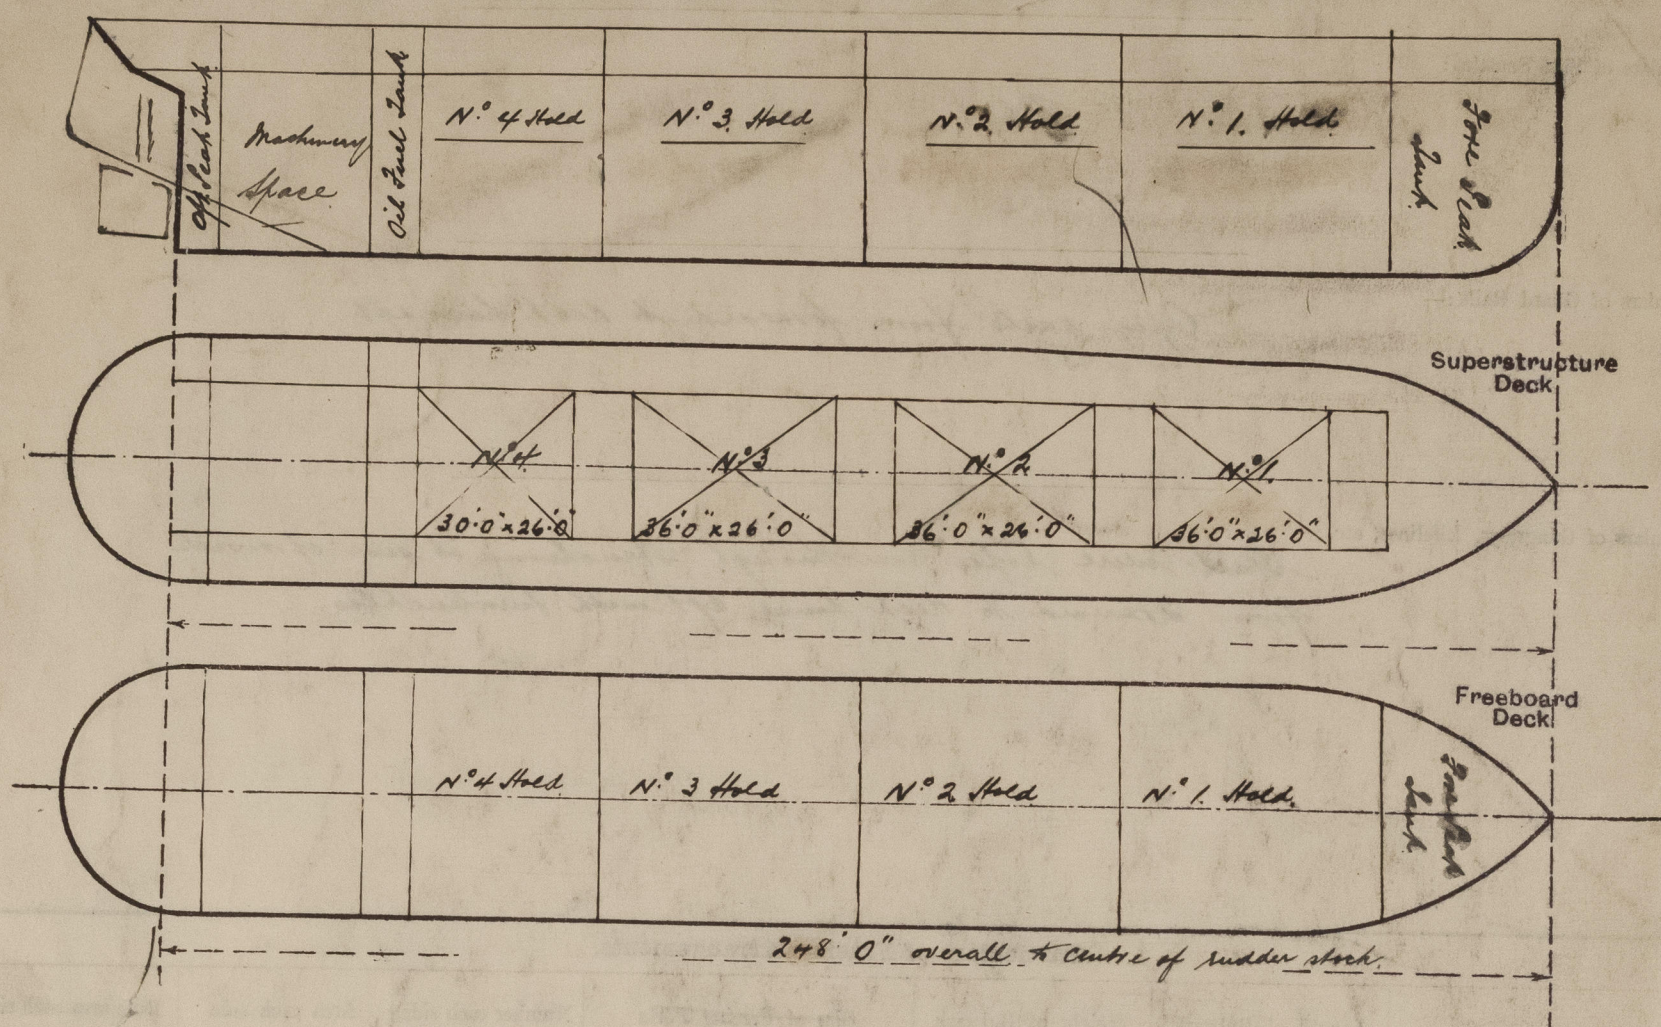 Aft Peak Tank
Machinery
Space
Oil Fuel Tank
No 4 Hold
No 3. Hold
No 2 Hold
No 1. Hold
Fore Peak
Tank
Superstructure
Deck
No 4
30'.0" x 26'.0"
No 3
36'.0" x 26'.0"
No 2
36'.0" x 26'.0"
No 1.
36'.0" x 26'.0"
Freeboard
Deck
No 4 Hold
No 3 Hold
No 2 Hold
No 1. Hold.
Fore Peak
Tank
248' 0" overall to centre of rudder stock.